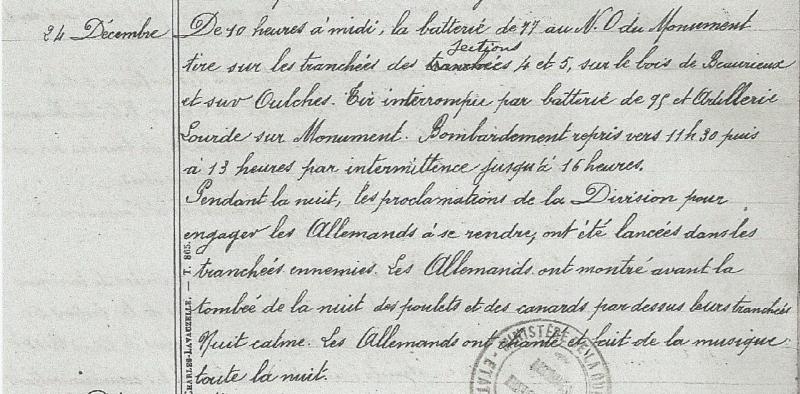 24 Décembre
De 10 heures à midi, la batterie de 77 au N.O du Monument
tire sur les tranchées des tranchées sections 4 et 5, sur le bois de Beaurieux
et sur Oulches. Tir interrompu par batterie de 95 et Artillerie
Lourde sur Monument. Bombardement repris vers 11h30 puis
à 13 heures par intermittence jusqu'à 16 heures.
Pendant la nuit, les proclamations de la Division pour
engager les Allemands à se rendre, ont été lancées dans les
tranchées ennemies. Les Allemands ont montré avant la
tombée de la nuit des poulets et des canards par dessus leurs tranchées
Nuit calme. Les Allemands ont chanté et fait de la musique
toute la nuit.
CHARLES-LAVAUZELLE. — T. 865.
MINISTÈRE
ÉTAT